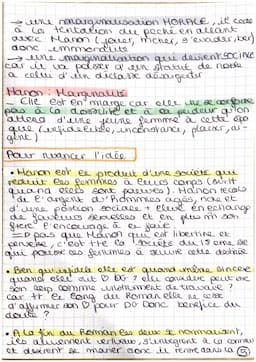 → une marginalisation MORALE, il cède
à la tentation du péché en allant
avec Manon (jouer, tricher, s'évader, tuer)
donc immoralité
→ une marginalisation qui devient SOCIALE
car il va passer d'un statut de noble
à celui d'un déclassé
Manon Marginalité
- Elle est en marge car elle ne se conforme
pas à la docilité et à la pudeur qu'on
attend d'une jeune femme de cette épo
que (infidélité, inconstance, plaisir, ar-
gent)
Pour nuancer l'idée
• Manon est le produit d'une société qui
réduit les femmes à leurs corps
quand elles sont pauvres). Manon reçoit
de l'argent d'hommes âgés, riches et
d'une position sociale élevée en échange
de faveurs sexuelles et en plus son
frère l'encourage à le faire
=> pas que Manon qui est libertine et
pervertie, c'est tte la société du 18 eme se
qui pousse les femmes à suivre cette destinée
• Bien qu'infidèle elle est quand même sincère
quand elle dit à DG? elle considère peut être
son corps comme instrument de travail?
car tt le long du Roman elle ne cesse
d'affirmer son pour DG Donc bénéfice du
doute?
• A la fin du Roman les deux se normalisent,
ils deviennent vertueux, s'intègrent à la commu
et désirent se marier donc